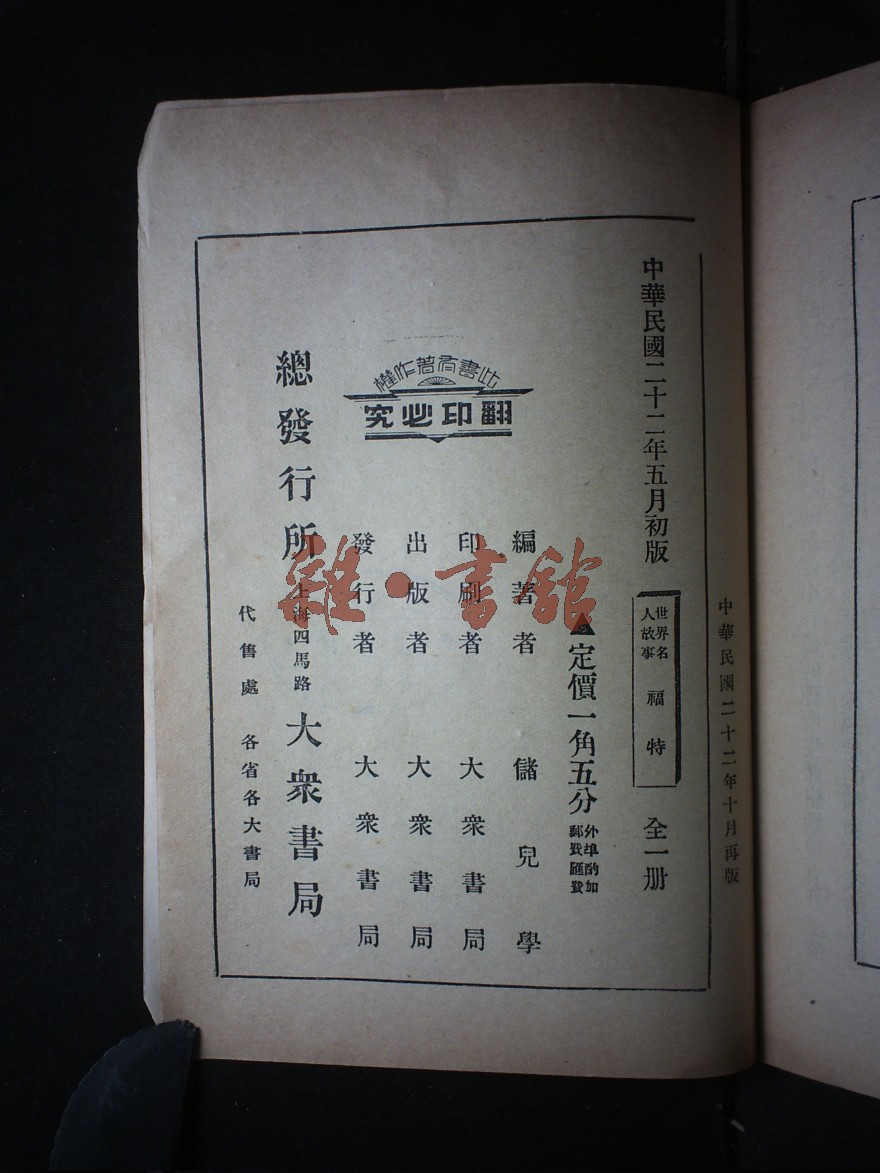 中華民國二十二年十月再版
中華民國二十二年五月初版
世界名人故事 福特
全一册
▲定價一角五分
外埠酌加郵費匯費
編著者 儲兒學
印刷者 大衆書局
出版者 大衆書局
發行者 大衆書局
此書有著作權
翻印必究
總發行所 上海四馬路 大衆書局
代售處 各省各大書局
雜·書舘